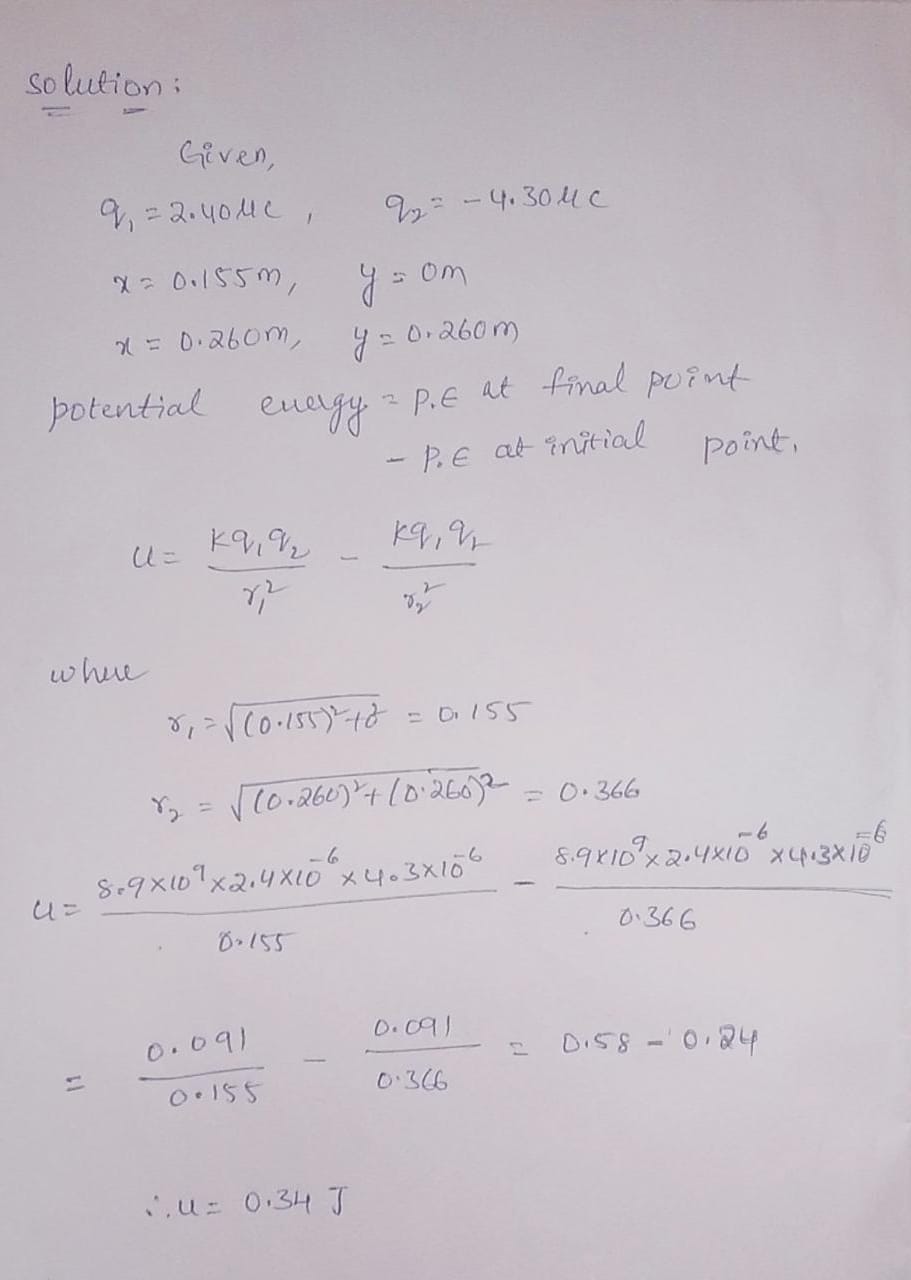 solution:
Given,
q₁ = 2.40μC, q₂ = -4.30μC
x = 0.155m, y = 0m
x = 0.260m, y = 0.260m
potential energy = P.E at final point
- P.E at initial point.
U = Kq₁q₂/r₁² - Kq₁q₂/r₂²
where
r₁ = √(0.155)²+0 = 0.155
r₂ = √(0.260)²+(0.260)² = 0.366
U = 8.9×10⁹×2.4×10⁻⁶×4.3×10⁻⁶/0.155 - 8.9×10⁹×2.4×10⁻⁶×4.3×10⁻⁶/0.366
= 0.091/0.155 - 0.091/0.366 = 0.58 - 0.24
∴ U = 0.34 J